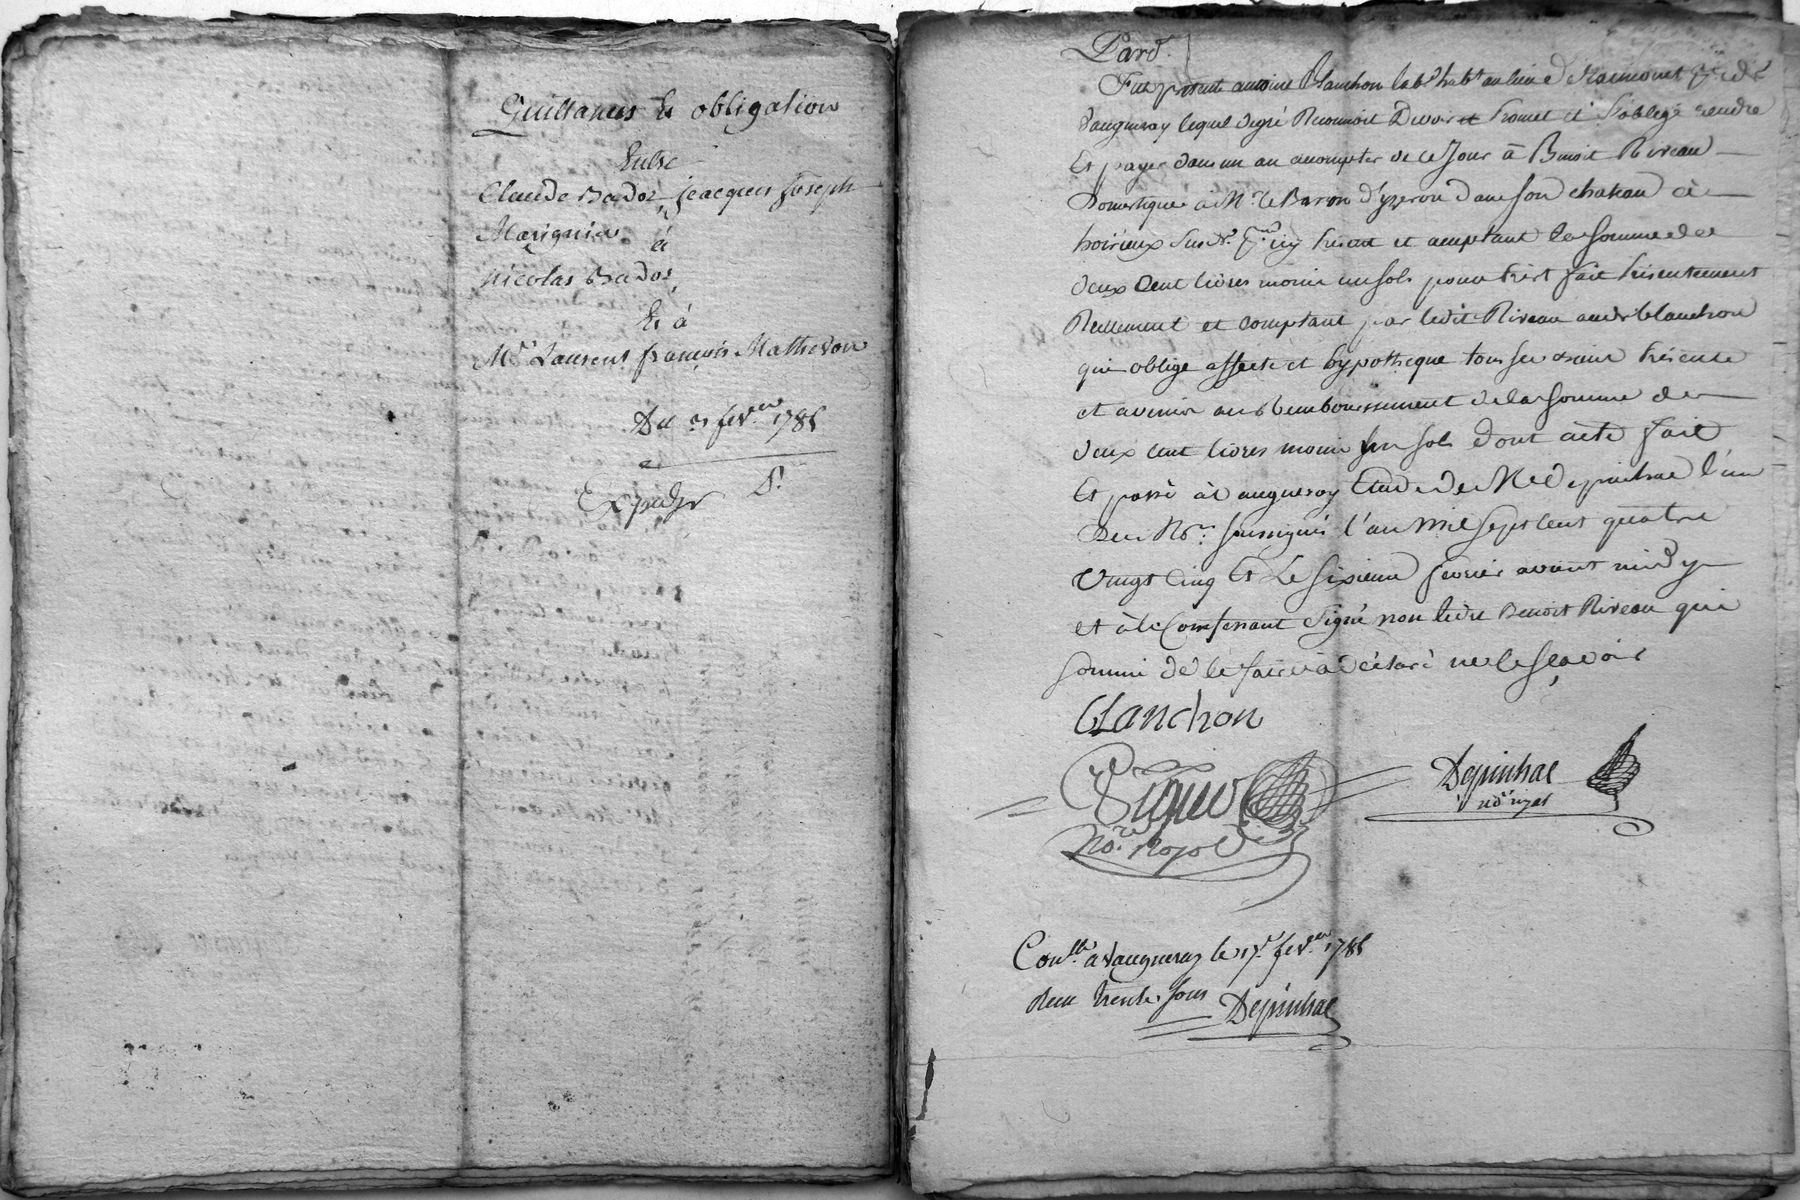 Quittances Et obligation
Entre
Claude Bador, jeacques joseph
Marignier à
Nicolas Bador,
Et à
Mr. Laurens françois Mathevon
Du 3 fevrer 1785
Expedr D.
Pard.
Fut present antoine Blanchon labr habt au lieu de
Vaugneray lequel degré Reconnoit Devoir et Promet et s'oblige rendre
Et payer dans un an acompter de ce Jour à Benoit Riveau
Domestique à Mr. le Baron d'yzeron dans son chateau de
hoirieux icy present et acceptant la somme de
deux Cent livres moins un sols pour Prêt fait présentement
Reellement et comptant par ledit Riveau audt blanchon
qui oblige affecte et hypotheque tous ses biens présents
et avenir au Remboursement de la somme de
deux cent livres moins un sols dont acte fait
Et passé à Vaugneray Etude de Me depinhac l'un
Des Nores. soussignés l'an Mil sept cent quatre
vingt cinq Et Le sixieme fevrier avant midy
et à le Confessant signé non ledit Benoit Riveau qui
sommé de le faire a déclaré ne le sçavoir
bLanchon
Depinhac
nore royal
Nore. Royal
Conllé à Vaugneray le 17e. fevrer 1785
Reçu trente sous Depinhac